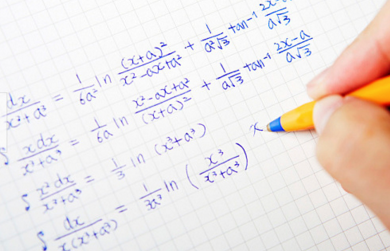 dx/(x³+a³) = 1/(6a²) ln (x+a)²/(x²-ax+a²) + 1/(a²√3) tan⁻¹ (2x-a)/(a√3)
∫ xdx/(x³+a³) = 1/(6a) ln (x²-ax+a²)/(x+a)² + 1/(a√3) tan⁻¹ (2x-a)/(a√3)
∫ x²dx/(x³+a³) = 1/3 ln (x³+a³)
∫ dx/(x(x³+a³)) = 1/(3a³) ln (x³/(x³+a³))
x